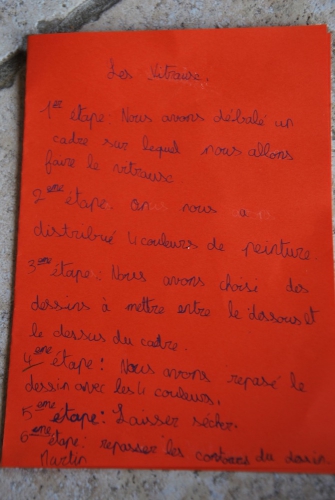 Les Vitrause.
1ere étape: Nous avons débalé un
cadre sur lequel nous allons
faire le vitrause
2eme étape: On nous a
distribué 4 couleurs de peinture.
3eme étape: Nous avons choisi des
dessins à mettre entre le dessous et
le dessus du cadre.
4eme étape: Nous avons repasé le
dessin avec les 4 couleurs.
5eme étape: Laisser sécher.
6eme étape: repasser les contours du dessin
Martin